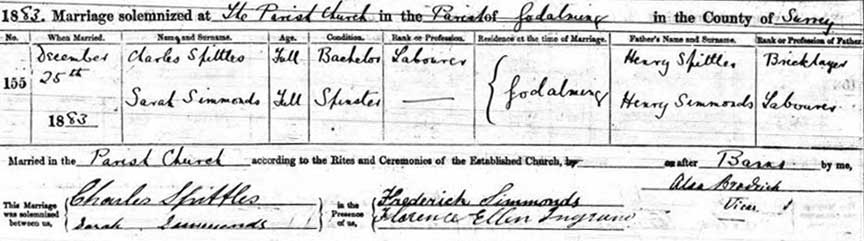 1883. Marriage solemnized at The Parish Church in the Parish of Godalming in the County of Surrey
No. When Married. Name and Surname. Age. Condition. Rank or Profession. Residence at the time of Marriage. Father's Name and Surname. Rank or Profession of Father.
155 December 25th 1883 Charles Spittles Full Bachelor Labourer Godalming Henry Spittles Bricklayer
Sarah Simmonds Full Spinster — Henry Simmonds Labourer
Married in the Parish Church according to the Rites and Ceremonies of the Established Church, by or after Banns by me,
This Marriage was solemnized between us, Charles Spittles in the Presence of us, Frederick Simmonds
Sarah Simmonds Florence Ellen Ingram Vicar